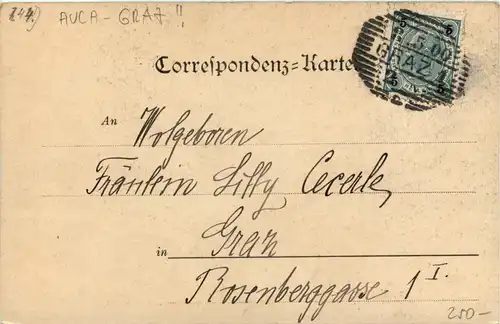 AVCA - GRAZ !!
5 5
GRAZ 1
5 5
Correspondenz-Karte
An Wolgeboren
Fräulein Lilly Cecerle
in Graz
Rosenberggasse 1 I.
250-